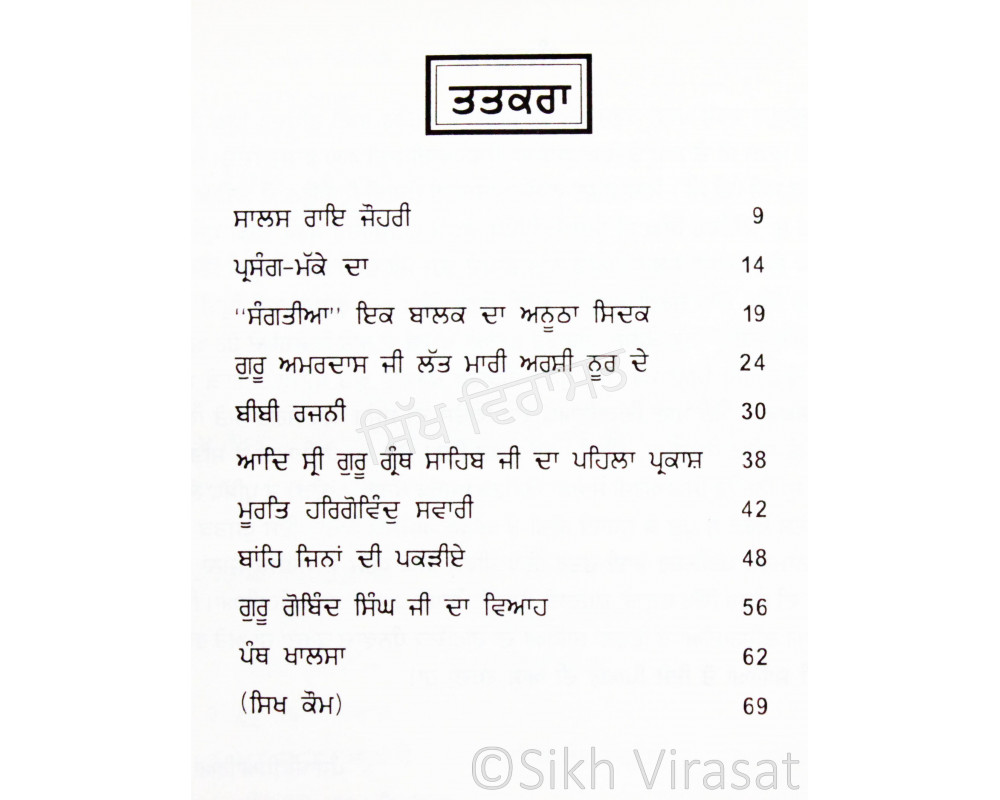 ਤਤਕਰਾ
ਸਾਲਸ ਰਾਇ ਜੌਹਰੀ 9
ਪ੍ਰਸੰਗ-ਮੱਕੇ ਦਾ 14
"ਸੰਗਤੀਆ" ਇਕ ਬਾਲਕ ਦਾ ਅਨੂਠਾ ਸਿਦਕ 19
ਗੁਰੂ ਅਮਰਦਾਸ ਜੀ ਲੱਤ ਮਾਰੀ ਅਰਸ਼ੀ ਨੂਰ ਦੇ 24
ਬੀਬੀ ਰਜਨੀ 30
ਸਿੱਖ ਵਿਰਾਸਤ
ਆਦਿ ਸ੍ਰੀ ਗੁਰੂ ਗ੍ਰੰਥ ਸਾਹਿਬ ਜੀ ਦਾ ਪਹਿਲਾ ਪ੍ਰਕਾਸ਼ 38
ਮੂਰਤਿ ਹਰਿਗੋਵਿੰਦੁ ਸਵਾਰੀ 42
ਬਾਂਹਿ ਜਿਨਾਂ ਦੀ ਪਕੜੀਏ 48
ਗੁਰੂ ਗੋਬਿੰਦ ਸਿੰਘ ਜੀ ਦਾ ਵਿਆਹ 56
ਪੰਥ ਖਾਲਸਾ 62
(ਸਿਖ ਕੌਮ) 69
©Sikh Virasat